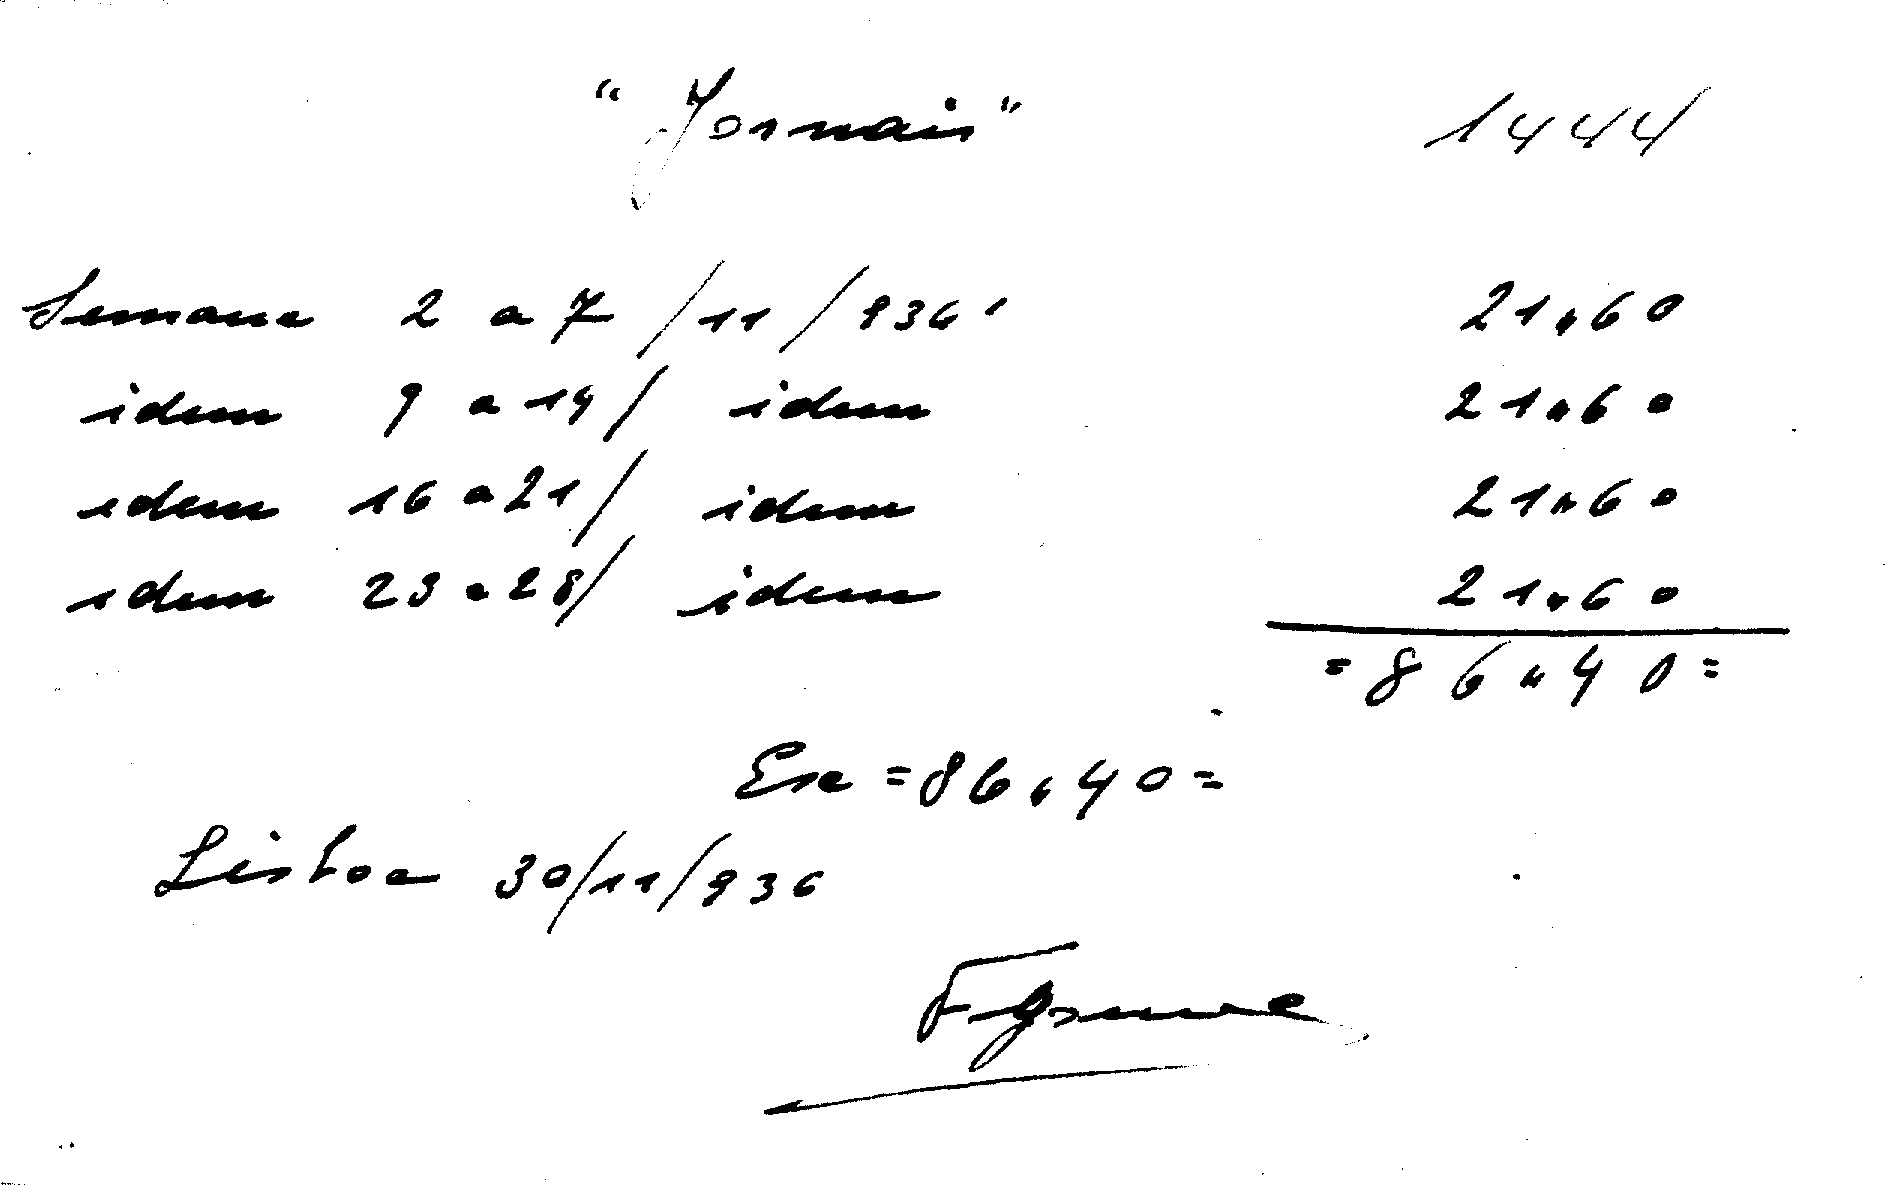 "Jornais" 1444
Semana 2 a 7/11/936 21"60
idem 9 a 14/ idem 21"60
idem 16 a 21/ idem 21"60
idem 23 a 28/ idem 21"60
=86"40=
Esc =86"40=
Lisboa 30/11/936